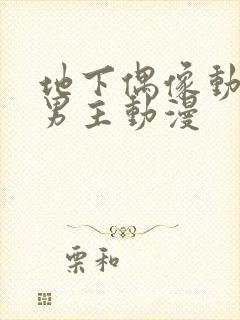 地下偶像動
男主動漫
栗和